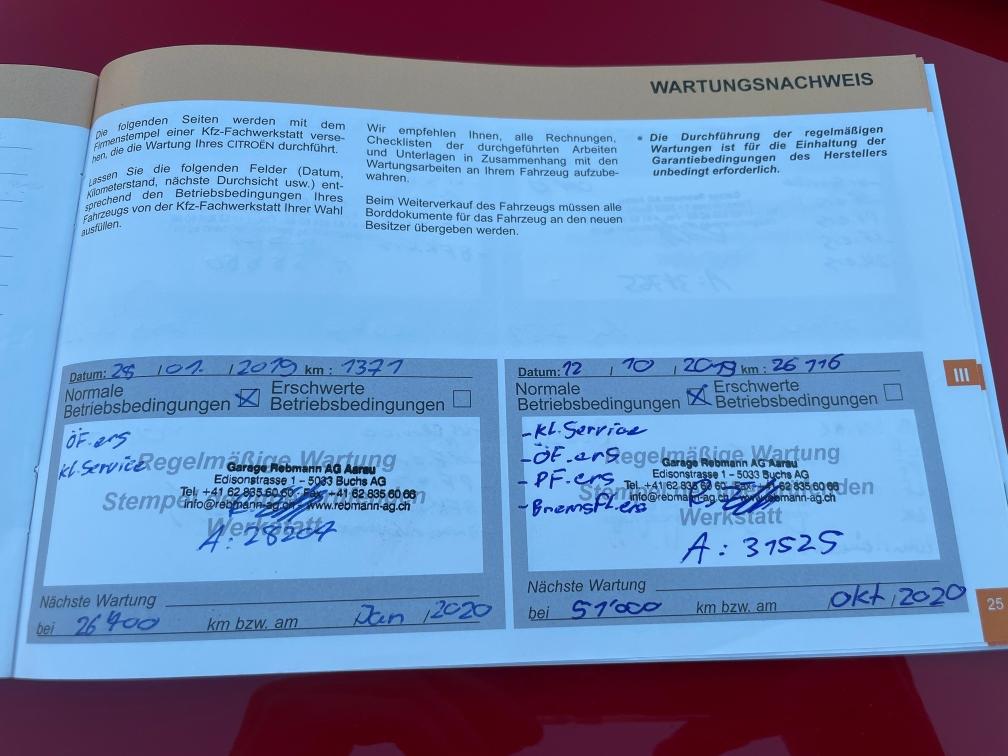 WARTUNGSNACHWEIS
Die folgenden Seiten werden mit dem
Firmenstempel einer Kfz-Fachwerkstatt verse-
hen, die die Wartung Ihres CITROËN durchführt.
Lassen Sie die folgenden Felder (Datum,
Kilometerstand, nächste Durchsicht usw.) ent-
sprechend den Betriebsbedingungen Ihres
Fahrzeugs von der Kfz-Fachwerkstatt Ihrer Wahl
ausfüllen.
Wir empfehlen Ihnen, alle Rechnungen,
Checklisten der durchgeführten Arbeiten
und Unterlagen in Zusammenhang mit den
Wartungsarbeiten an Ihrem Fahrzeug aufzube-
wahren.
Beim Weiterverkauf des Fahrzeugs müssen alle
Borddokumente für das Fahrzeug an den neuen
Besitzer übergeben werden.
• Die Durchführung der regelmäßigen
Wartungen ist für die Einhaltung der
Garantiebedingungen des Herstellers
unbedingt erforderlich.
Datum: 28 / 01. / 2019 km : 1371
Normale
Betriebsbedingungen
Erschwerte
Betriebsbedingungen
ÖF.ers
Kl.Service
Regelmäßige Wartung
Garage Rebmann AG Aarau
Edisonstrasse 1 – 5033 Buchs AG
Stempel
Tel. +41 62 835 60 60 · Fax +41 62 835 60 66
info@rebmann-ag.ch · www.rebmann-ag.ch
Werkstatt
A: 28204
Nächste Wartung
bei 26400 km bzw. am Jan / 2020
Datum: 12 / 10 / 2019 km : 26 116
Normale
Betriebsbedingungen
Erschwerte
Betriebsbedingungen
- Kl.Service
- ÖF.ers
- PF.ers
- Bremsfl.ers
Regelmäßige Wartung
Garage Rebmann AG Aarau
Edisonstrasse 1 – 5033 Buchs AG
Tel. +41 62 835 60 60 · Fax +41 62 835 60 66
info@rebmann-ag.ch · www.rebmann-ag.ch
Werkstatt
A: 31525
Nächste Wartung
bei 51'000 km bzw. am Okt / 2020
III
25